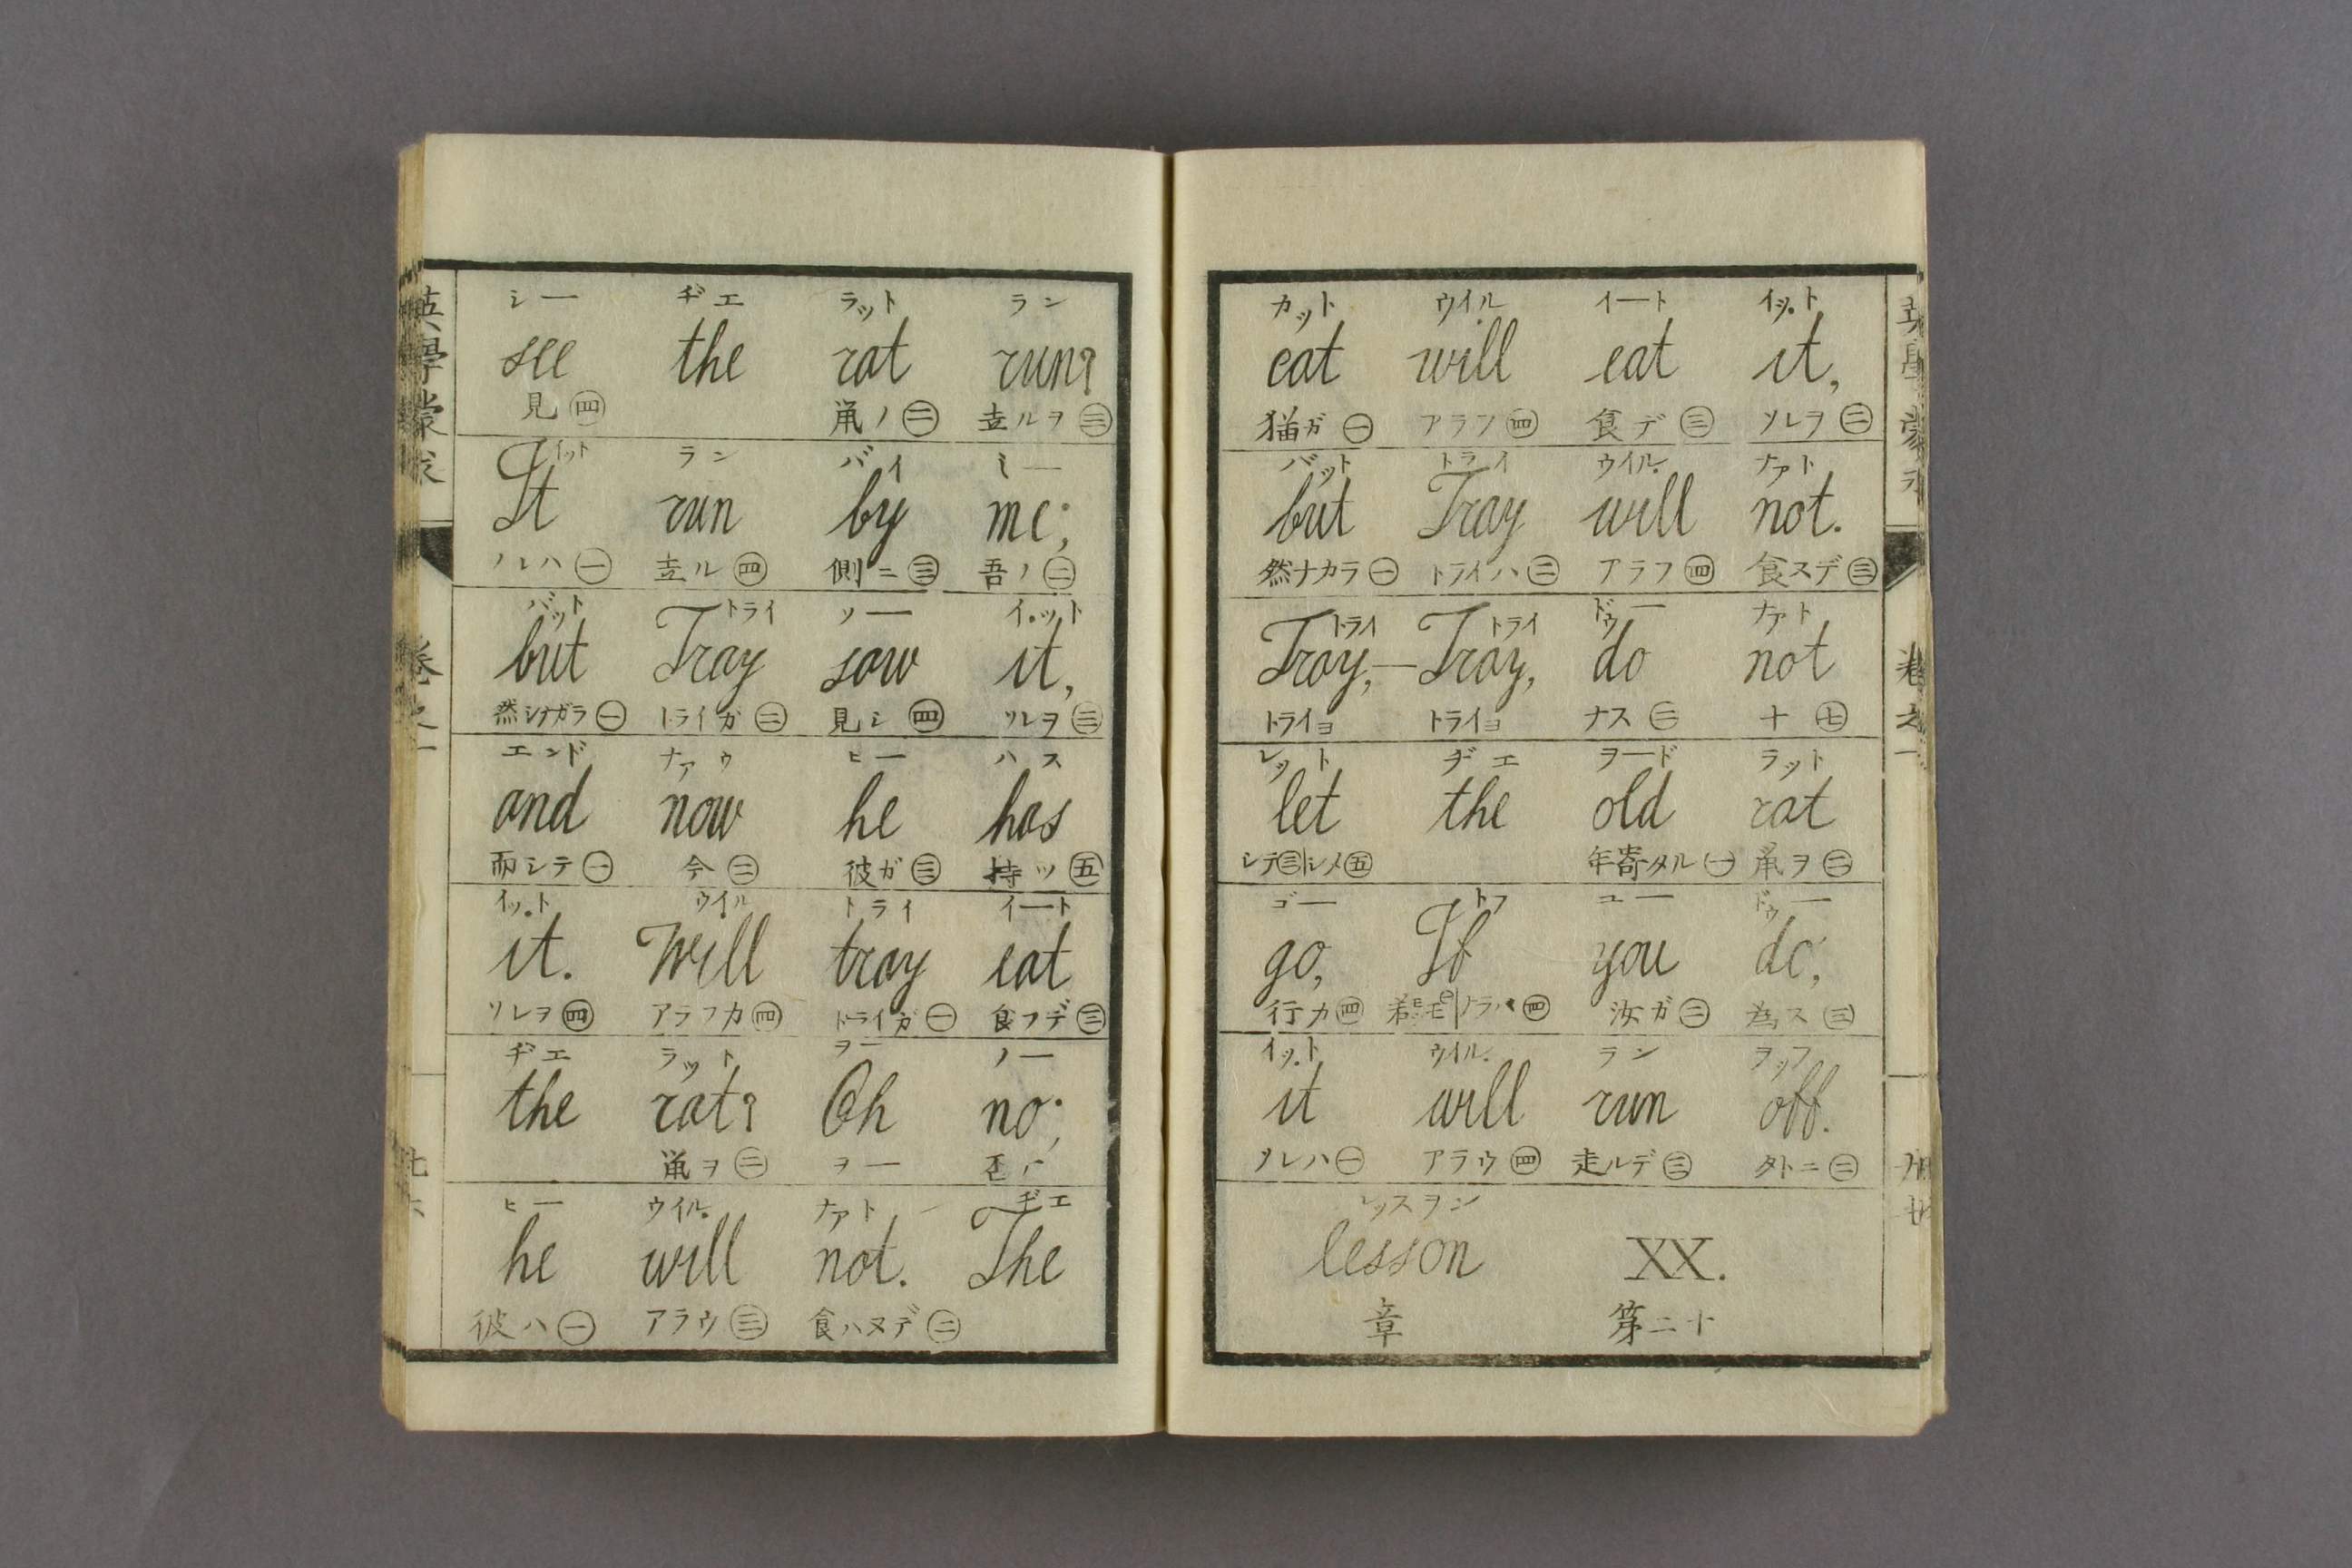 シー ヂエ ラット ラン
see the rat run?
見㊃ 鼠ノ㊁ 走ルヲ㊂
イット ラン バイ ミー
It run by me;
ソレハ㊀ 走ル㊃ 側ニ㊂ 吾ノ㊁
バット トライ ソー イット
but Tray saw it,
然シナガラ㊀ トライガ㊁ 見シ㊃ ソレヲ㊂
エンド ナァウ ヒー ハス
and now he has
而シテ㊀ 今㊁ 彼ガ㊂ 持ツ㊄
イット ウイル トライ イート
it. Will tray eat
ソレヲ㊃ アラフカ㊃ トライガ㊀ 食フデ㊂
ヂエ ラット ヲー ノー
the rat? Oh no;
鼠ヲ㊁ ヲー 否
ヒー ウイル ナァト ヂエ
he will not. The
彼ハ㊀ アラウ㊂ 食ハヌデ㊁
カット ウイル イート イット
cat will eat it,
猫ガ㊀ アラフ㊃ 食デ㊂ ソレヲ㊁
バット トライ ウイル ナァト
but Tray will not.
然ナカラ㊀ トライハ㊁ アラフ㊃ 食スデ㊂
トライ トライ ドゥー ナァト
Tray,—Tray, do not
トライヨ トライヨ ナス ㊅ ナ ㊆
レット ヂエ ヲード ラット
let the old rat
シテ㊂ シメ㊄ 年寄タル㊀ 鼠ヲ㊁
ゴー トフ ユー ドゥー
go, If you do,
行カ㊃ 若㊀ ナラバ㊃ 汝ガ㊁ 為ス㊂
イット ウイル ラン ヲッフ
it will run off.
ソレハ㊀ アラウ㊃ 走ルデ㊂ タトニ㊁
レッスヲン
lesson XX.
章 第二十
英學蒙求
巻之一